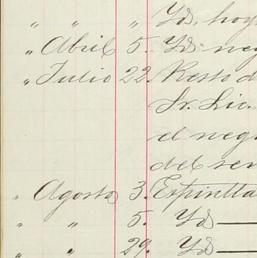 " " " Yd. hoy
" Abril 5. Yd. neg
" Julio 22. Resto d
Sr. Lic.
el neg
del ser
" Agosto 3. Espiritta
" " 5. Yd
" " 29. Yd